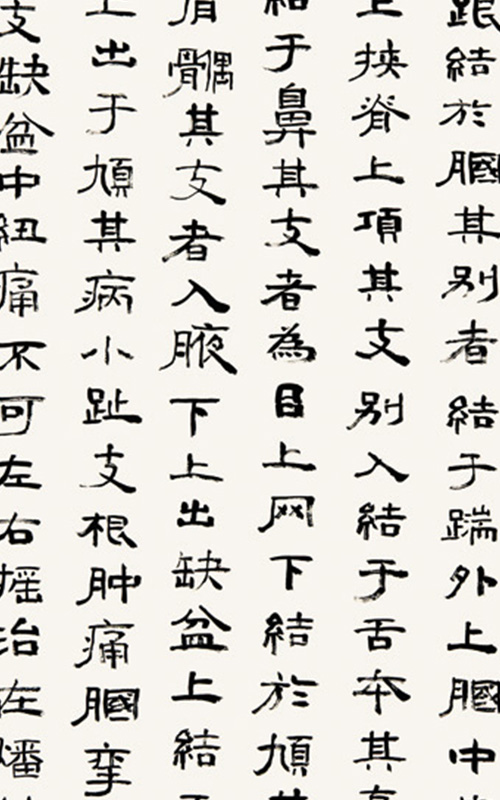 跟結於膕其別者結于踹外上膕中
上挾脊上項其支別入結于舌本其
結于鼻其支者為目上网下結於頄其
髃其支者入腋下上出缺盆上結
上出于頄其病小趾支根肿痛膕挛
支缺盆中紐痛不可左右摇治在燔